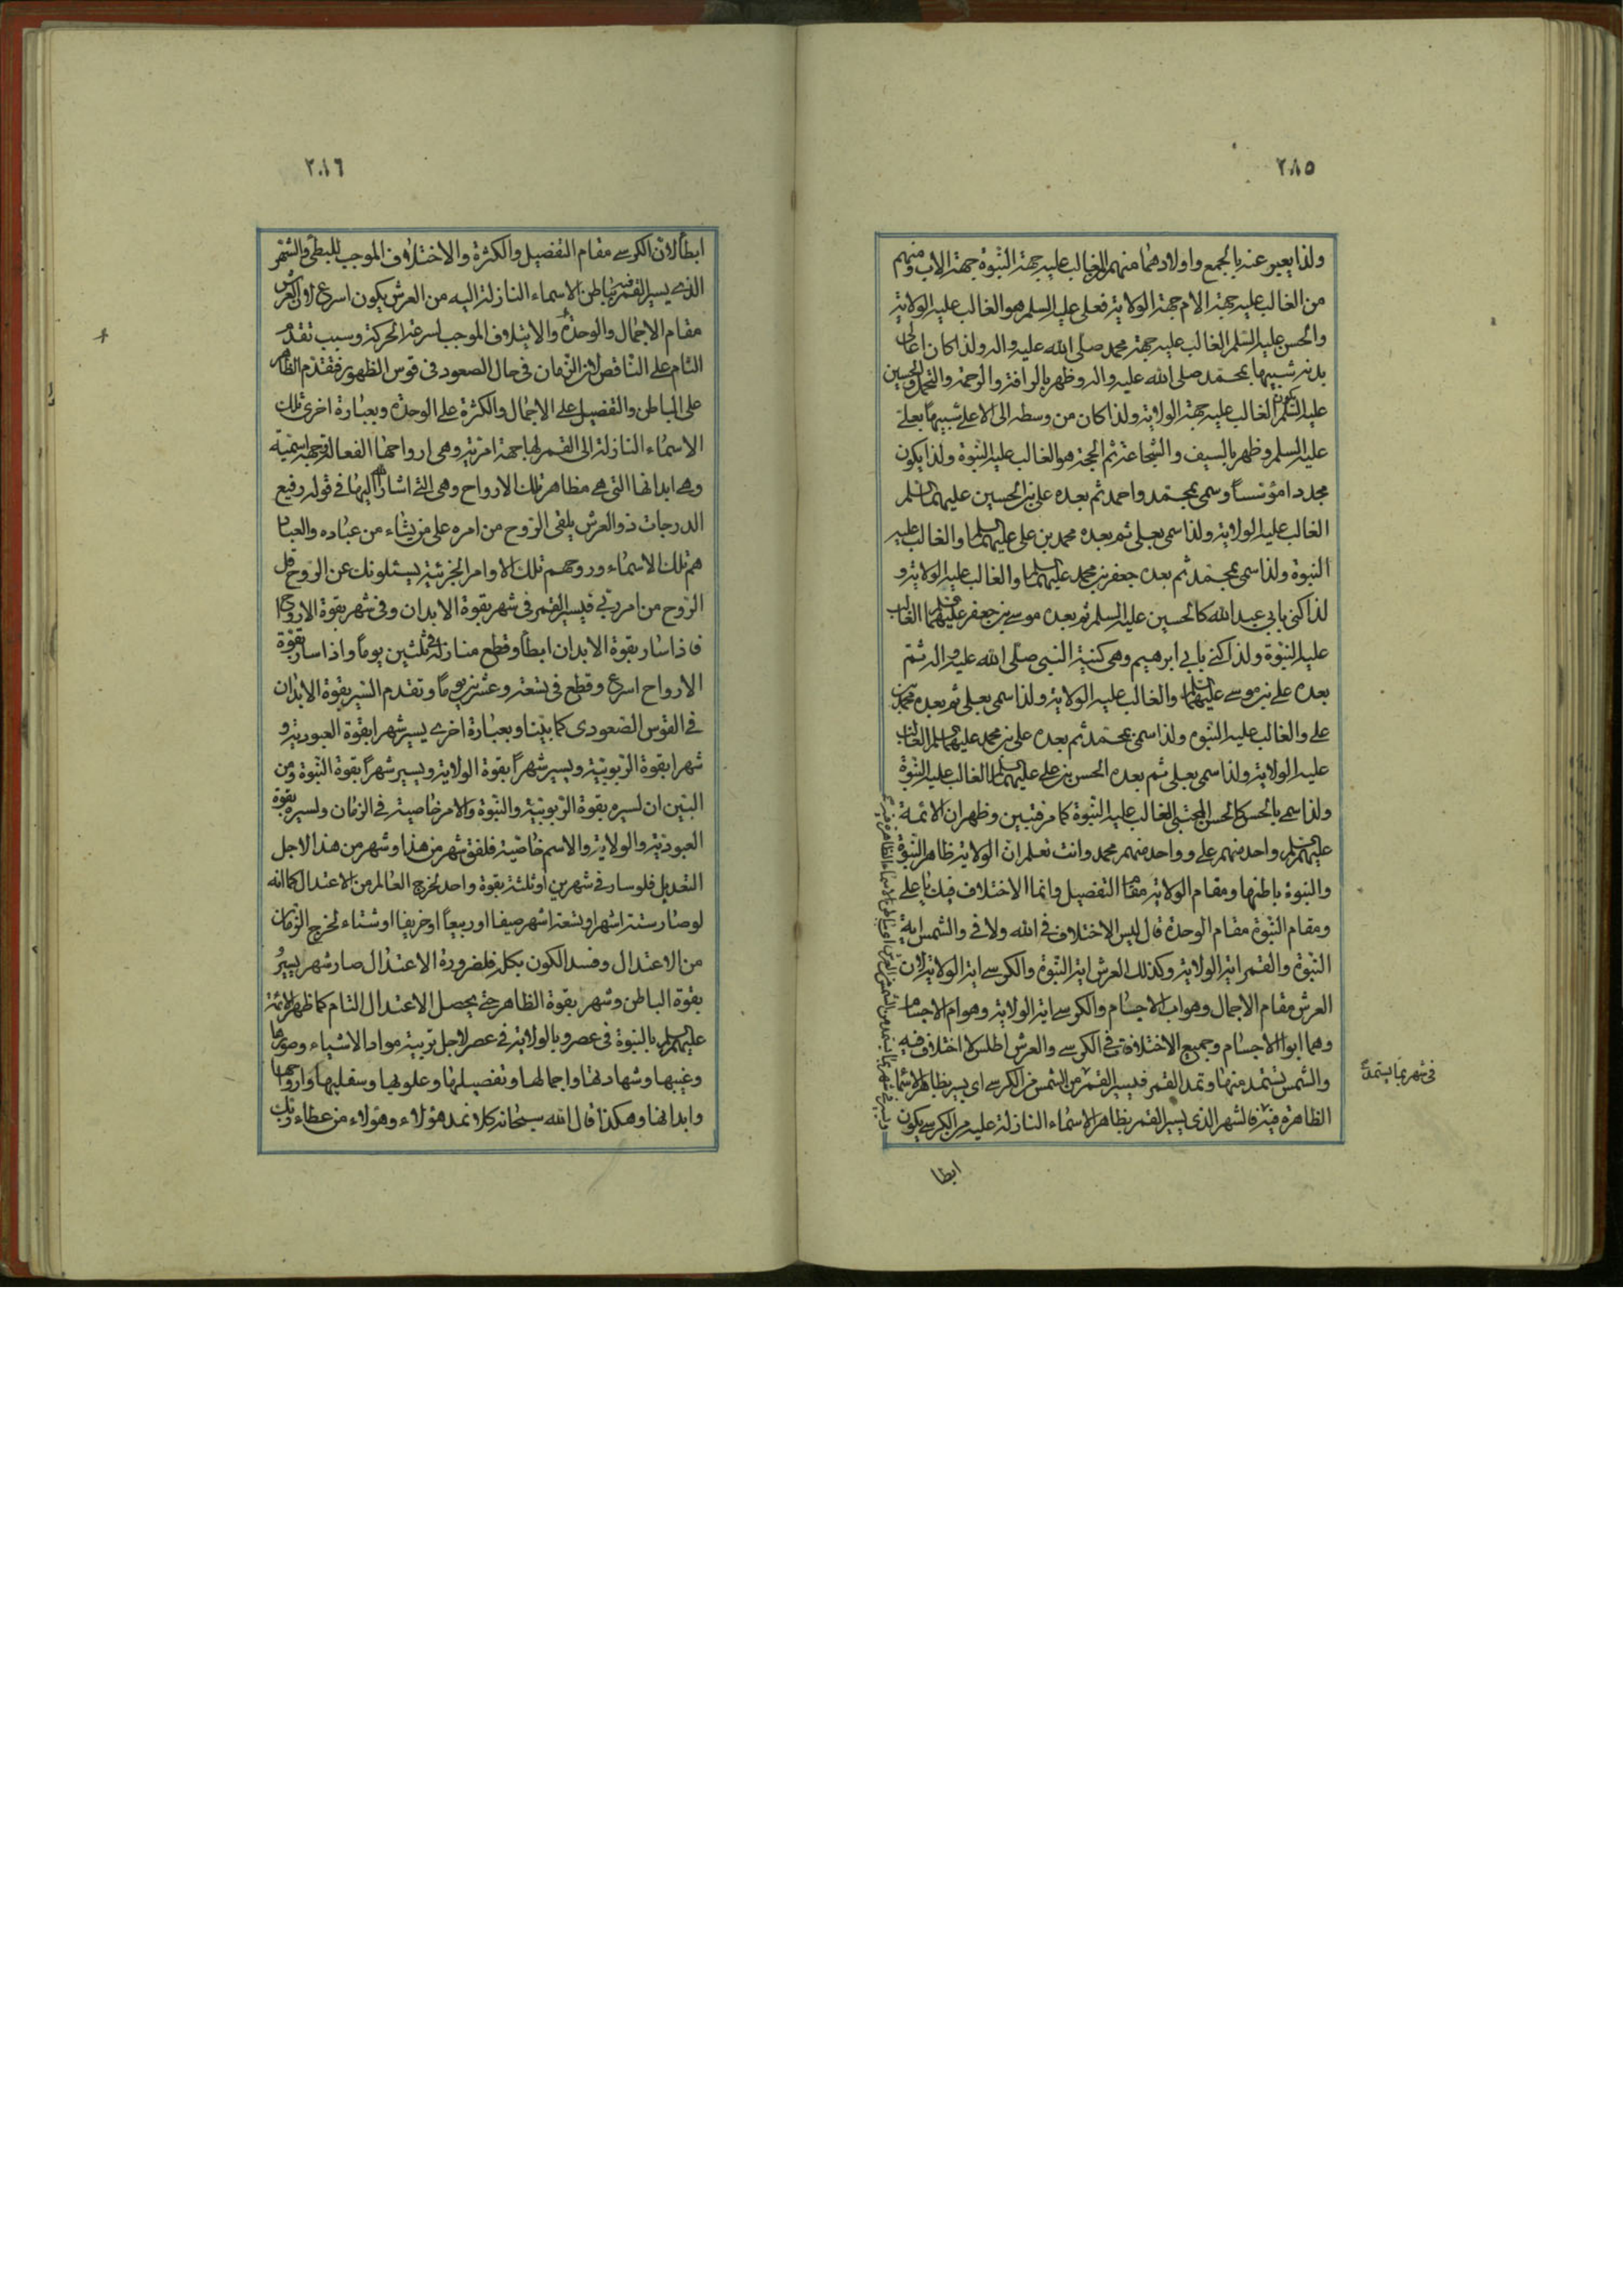 ٢٨٥
ولذا يعبر عنه بالجمع واولادهما منهم الغالب عليه جهة النبوة جهة الاب ومنهم
من الغالب عليه جهة الام جهة الولاية فعلى عليه السلم هو الغالب عليه الولاية
والحسن عليه السلم الغالب عليه جهة محمد صلى الله عليه واله ولذا كان اعالى
بدنه شبيها بمحمد صلى الله عليه واله وظهر بالرافة والرحمة والتحمل والحسين
عليه السلم الغالب عليه جهة الولاية ولذا كان من وسطه الى الاعلى شبيها بعلى
عليه السلم وظهر بالسيف والشجاعة ثم الحجة هو الغالب عليه النبوة ولذا يكون
مجددا مؤسسا وسمى بمحمد واحمد ثم بعده على بن الحسين عليهما السلم
الغالب عليه الولاية ولذا سمى بعلى ثم بعده محمد بن على عليهما السلم والغالب عليه
النبوة ولذا سمى بمحمد ثم بعده جعفر بن محمد عليهما السلم والغالب عليه الولاية و
لذا كنى بابي عبد الله كالحسين عليه السلم ثم بعده موسى بن جعفر عليهما السلم الغالب
عليه النبوة ولذا كنى بابي ابرهيم وهى كنية النبي صلى الله عليه واله ثم
بعده على بن موسى عليهما السلم والغالب عليه الولاية ولذا سمى بعلى ثم بعده محمد بن
على والغالب عليه النبوة ولذا سمى بمحمد ثم بعده على بن محمد عليهما السلم الغالب
عليه الولاية ولذا سمى بعلى ثم بعده الحسن بن على عليهما السلم الغالب عليه النبوة
ولذا سمى بالحسن كالحسن المجتبى الغالب عليه النبوة كما مر فتبين وظهر ان الائمة
عليهم السلم واحد منهم على وواحد منهم محمد وانت تعلم ان الولاية ظاهر النبوة
والنبوة باطنها ومقام الولاية مقام التفصيل وانما الاختلاف فيك يا على
ومقام النبوة مقام الوحدة قال ليس الاختلاف فى الله ولا فى والشمس اية
النبوة والقمر اية الولاية وكذلك العرش اية النبوة والكرسى اية الولاية لان
العرش مقام الاجمال وهو اب الاجسام والكرسى اية الولاية وهو ام الاجسام
وهما ابوا الاجسام وجميع الاختلافات فى الكرسى والعرش اطلس لا اختلاف فيه
والشمس تستمد منهما وتمد القمر فيسير القمر من الشمس من الكرسى اى يسير بظاهر الاسماء
الظاهرة فيه فالشهر الذى يسير القمر بظاهر الاسماء النازلة عليه من الكرسى يكون
فى شهر بما يستمد
ابطا
٢٨٦
ابطأ لان الكرسى مقام التفصيل والكثرة والاختلاف الموجب للبطئ والشهر
الذى يسير القمر فيه بباطن الاسماء النازلة اليه من العرش يكون اسرع لان العرش
مقام الاجمال والوحدة والايتلاف الموجب لسرعة الحركة وسبب تقدم
التام على الناقص لان الزمان فى حال الصعود فى قوس الظهور فتقدم الظاهر
على الباطن والتفصيل على الاجمال والكثرة على الوحدة وبعبارة اخرى تلك
الاسماء النازلة الى القمر لها جهة امرية وهى ارواحها الفعالة وجهة اسمية
وهى ابدانها التى هى مظاهر تلك الارواح وهى التى اشار الله اليها فى قوله رفيع
الدرجات ذو العرش يلقى الروح من امره على من يشاء من عباده والعباد
هم تلك الاسماء وروحهم تلك الاوامر الجزئية يسئلونك عن الروح قل
الروح من امر ربى فيسير القمر فى شهر بقوة الابدان وفى شهر بقوة الارواح
فاذا سار بقوة الابدان ابطأ وقطع منازله فى ثلثين يوما واذا سار بقوة
الارواح اسرع وقطع فى تسعة وعشرين يوما وتقدم السير بقوة الابدان
فى القوس الصعودى كما بينا وبعبارة اخرى يسير شهرا بقوة العبودية و
شهرا بقوة الربوبية ويسير شهرا بقوة الولاية ويسير شهرا بقوة النبوة ومن
البين ان لسيره بقوة الربوبية والنبوة والامر خاصية فى الزمان ولسيره بقوة
العبودية والولاية والاسم خاصية فلفق شهر من هذا وشهر من هذا لاجل
التعديل فلو سار فى شهرين او ثلثة بقوة واحدة لخرج العالم من الاعتدال كما انه
لو صار ستة اشهر او تسعة اشهر صيفا او ربيعا او خريفا او شتاء لخرج الزمان
من الاعتدال وفسد الكون بكله فلضرورة الاعتدال صار شهر يسير
بقوة الباطن وشهر بقوة الظاهر حتى يحصل الاعتدال التام كما ظهر الائمة
عليهم السلم بالنبوة فى عصر وبالولاية فى عصر لاجل تربية مواد الاشياء وصورها
وغيبها وشهادتها واجمالها وتفصيلها وعلويها وسفليها وارواحها
وابدانها وهكذا قال الله سبحانه كلا نمد هؤلاء وهؤلاء من عطاء ربك